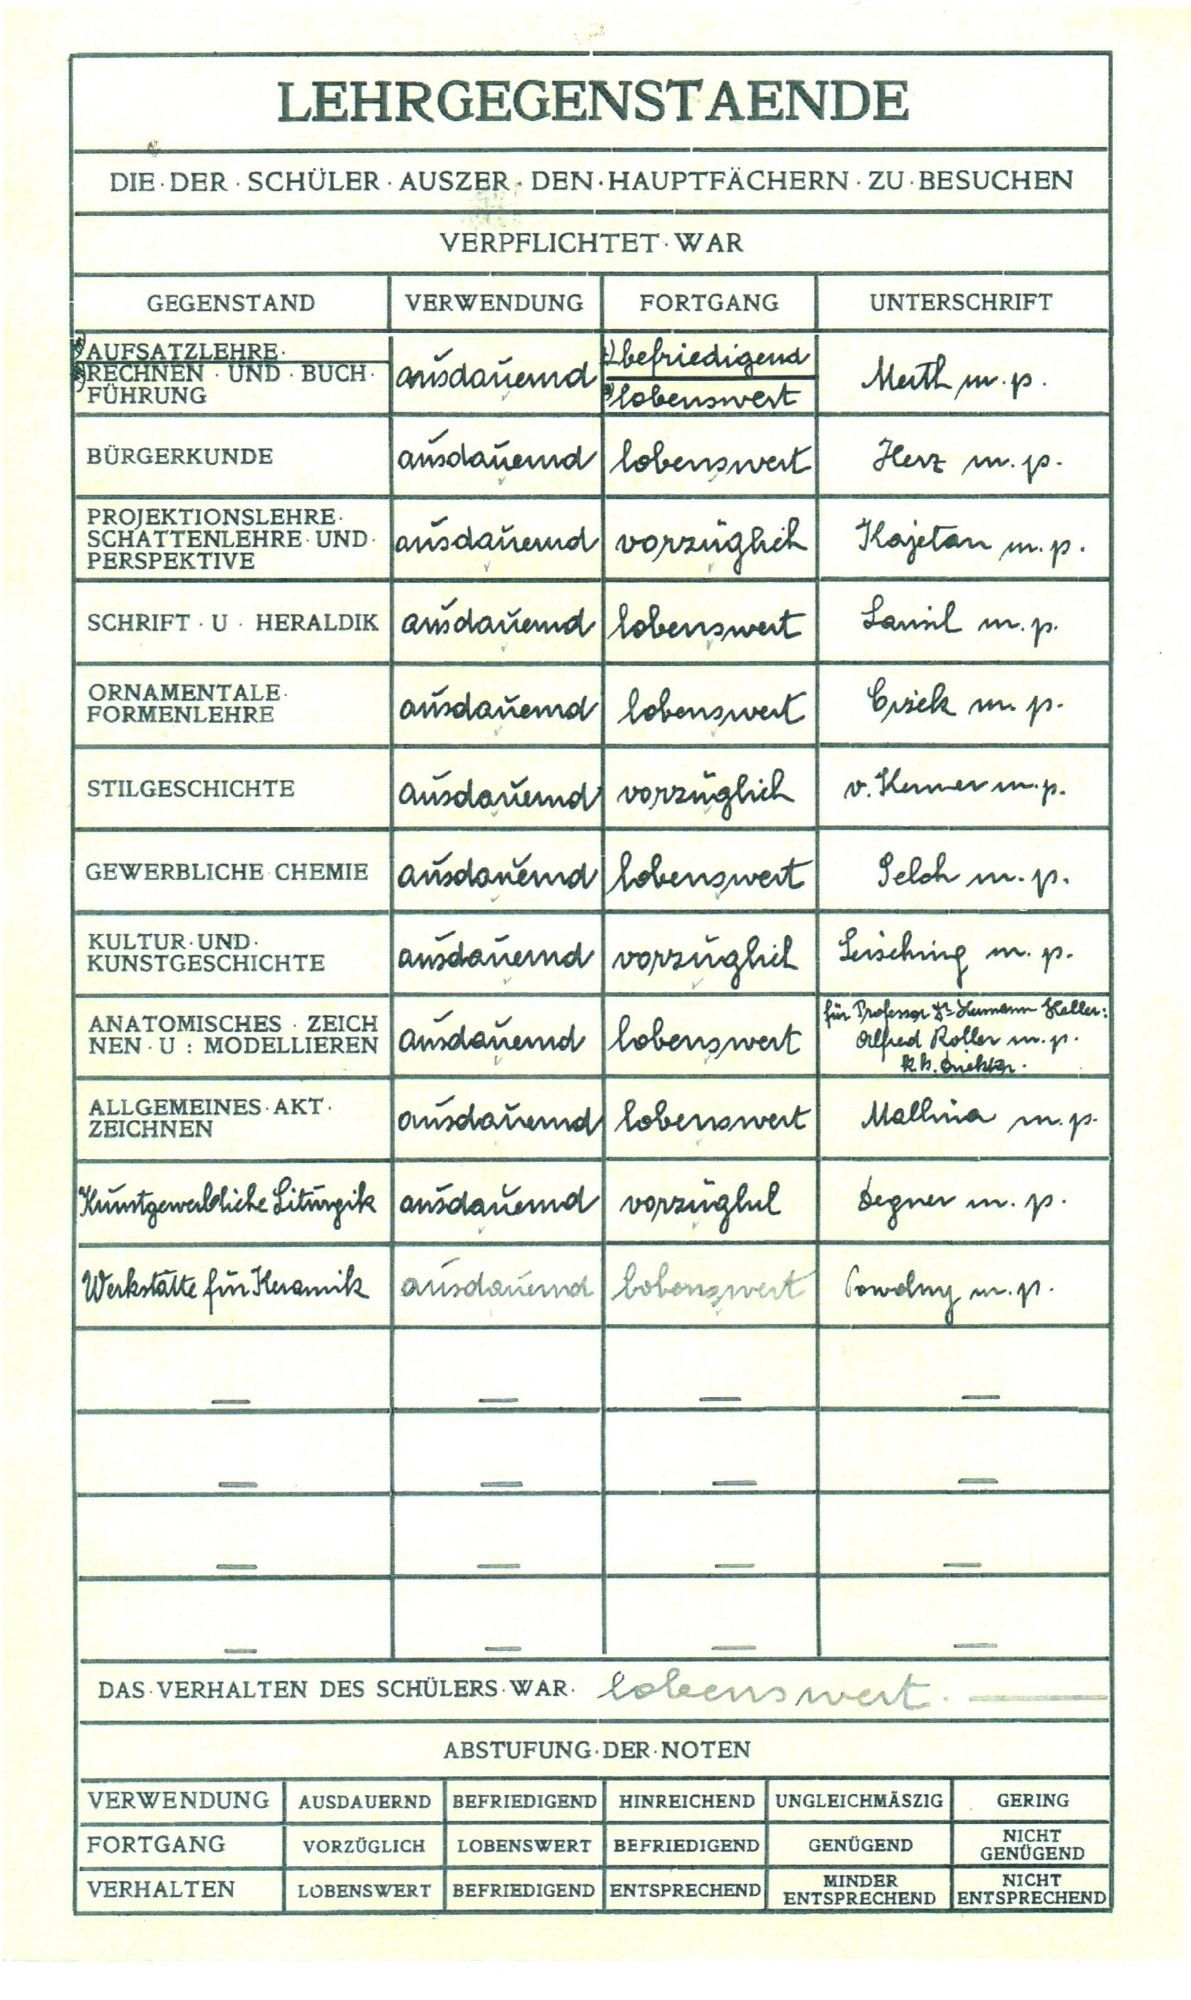 LEHRGEGENSTAENDE
DIE · DER · SCHÜLER · AUSZER · DEN · HAUPTFÄCHERN · ZU BESUCHEN
VERPFLICHTET · WAR
GEGENSTAND VERWENDUNG FORTGANG UNTERSCHRIFT
AUFSATZLEHRE · befriedigend
RECHNEN · UND · BUCH · ausdauernd Merth m. p.
FÜHRUNG lobenswert
BÜRGERKUNDE ausdauernd lobenswert Herz m. p.
PROJEKTIONSLEHRE ·
SCHATTENLEHRE · UND · ausdauernd vorzüglich Kajetan m. p.
PERSPEKTIVE
SCHRIFT · U · HERALDIK ausdauernd lobenswert m. p.
ORNAMENTALE ·
FORMENLEHRE ausdauernd lobenswert Cizek m. p.
STILGESCHICHTE ausdauernd vorzüglich v. Kenner m. p.
GEWERBLICHE CHEMIE ausdauernd lobenswert Selch m. p.
KULTUR · UND ·
KUNSTGESCHICHTE ausdauernd vorzüglich Leisching m. p.
für Professor Dr. Hermann Heller:
ANATOMISCHES · ZEICH
NEN · U : MODELLIEREN ausdauernd lobenswert Alfred Roller m. p.
k. k. Direktor.
ALLGEMEINES · AKT ·
ZEICHNEN ausdauernd lobenswert Mallina m. p.
Kunstgewerbliche Liturgik ausdauernd vorzüglich Segner m. p.
Werkstätte für Keramik ausdauernd lobenswert Powolny m. p.
DAS · VERHALTEN DES SCHÜLERS · WAR · lobenswert.
ABSTUFUNG · DER · NOTEN
VERWENDUNG AUSDAUERND BEFRIEDIGEND HINREICHEND UNGLEICHMÄSZIG GERING
FORTGANG VORZÜGLICH LOBENSWERT BEFRIEDIGEND GENÜGEND NICHT GENÜGEND
VERHALTEN LOBENSWERT BEFRIEDIGEND ENTSPRECHEND MINDER ENTSPRECHEND NICHT ENTSPRECHEND